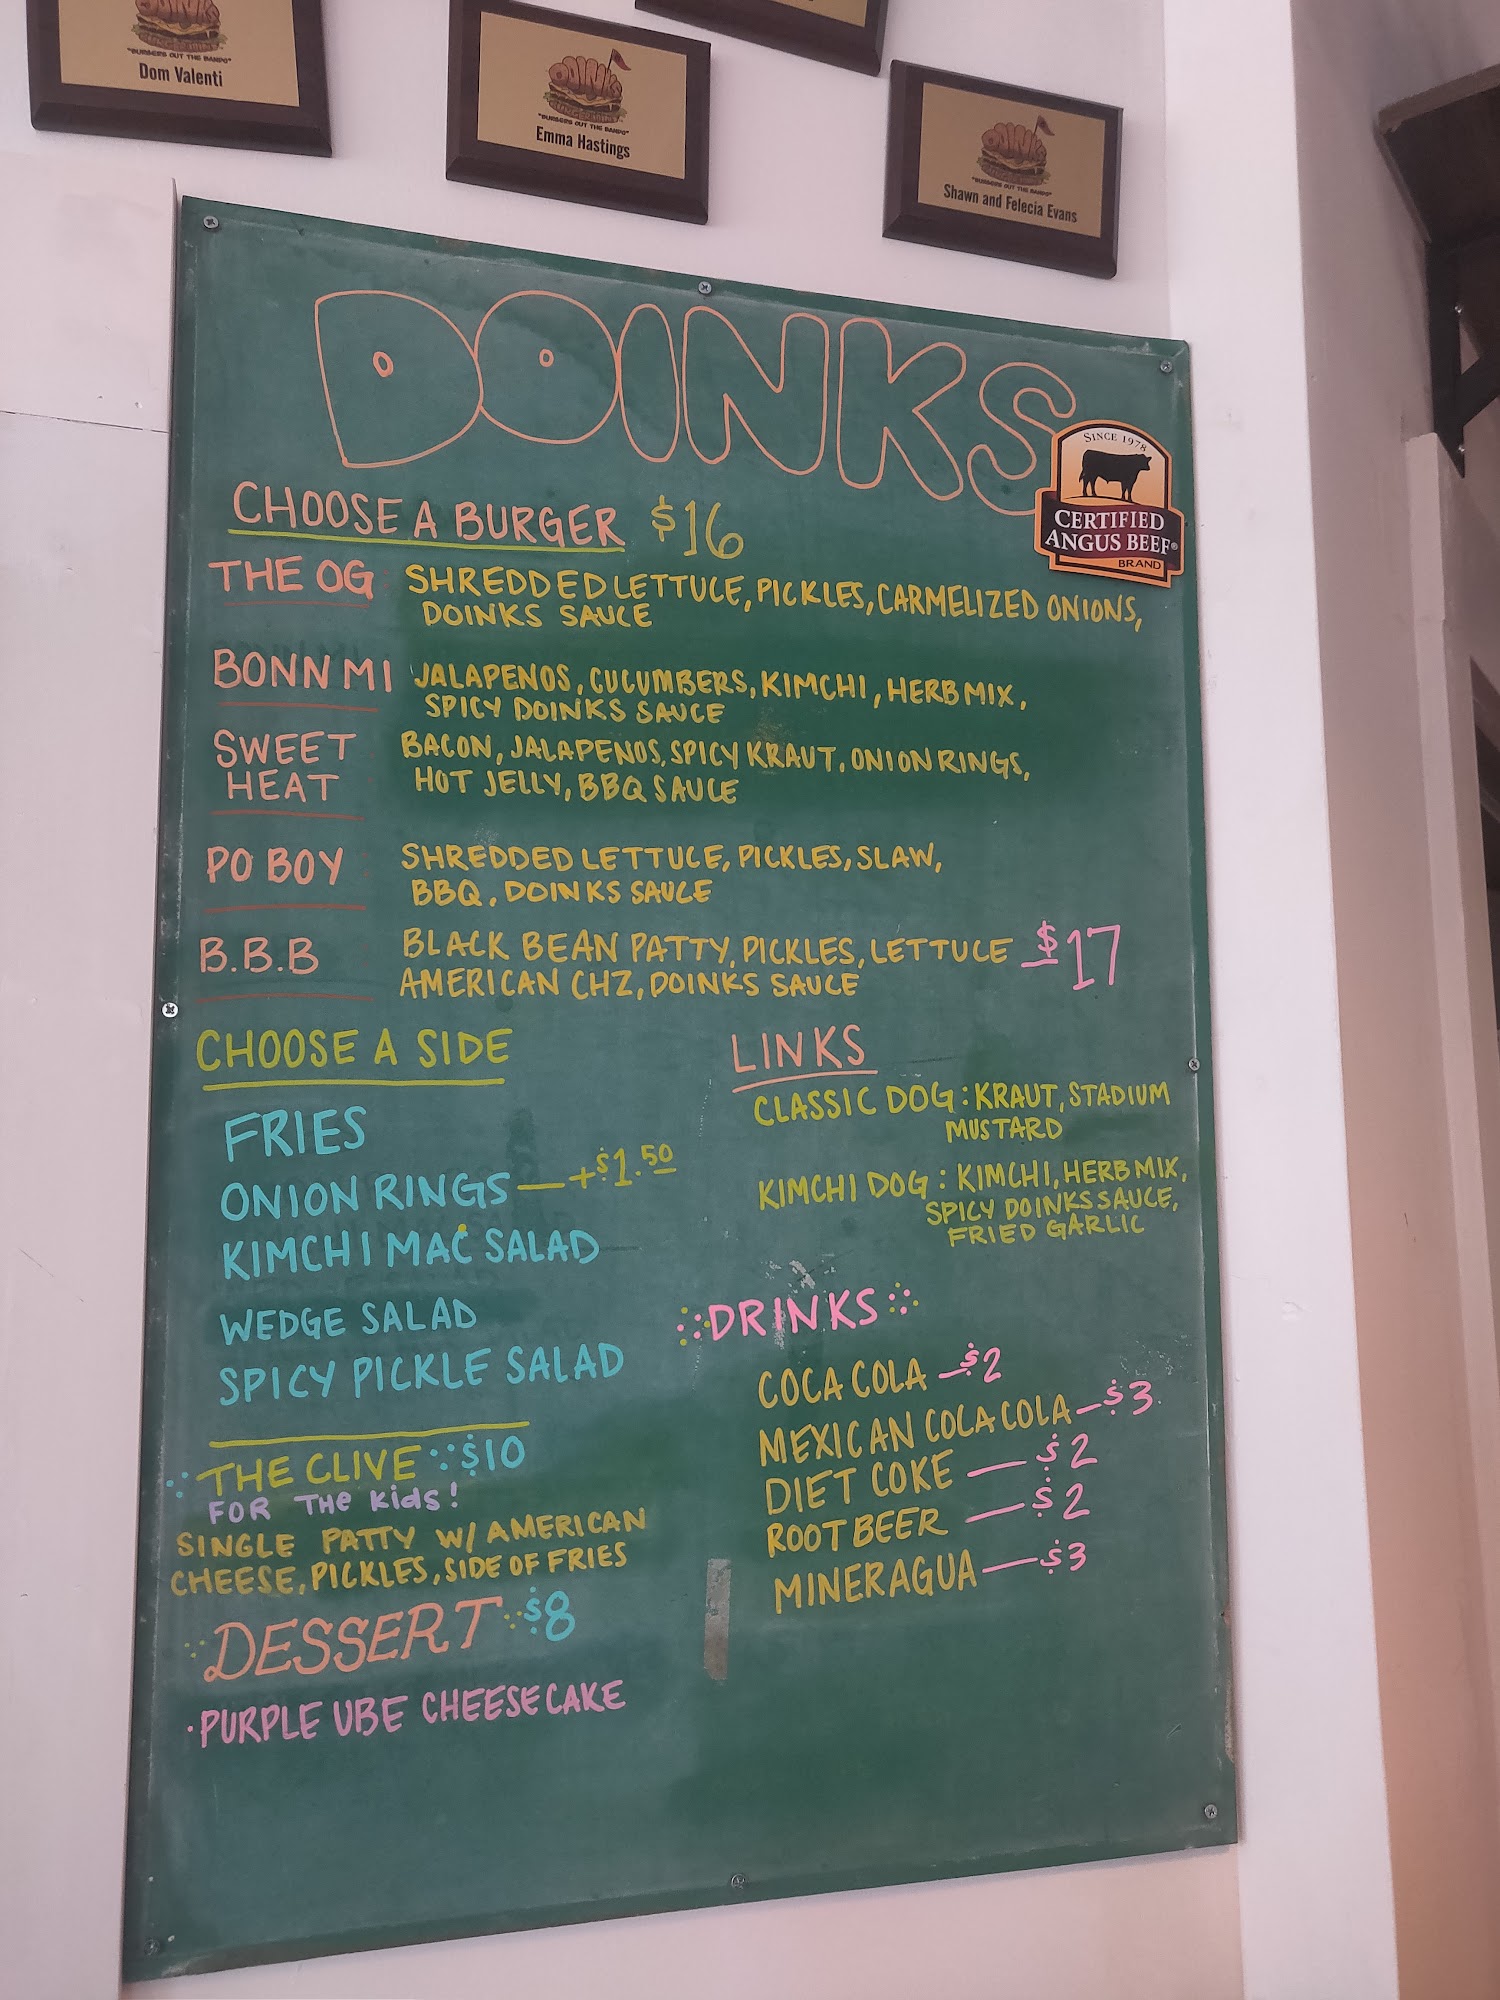 "BURGERS OUT THE BANDO"
Dom Valenti
DOINKS
"BURGERS OUT THE BANDO"
Emma Hastings
DOINKS
"BURGERS OUT THE BANDO"
Shawn and Felecia Evans
DOINKS
SINCE 1978
CERTIFIED
ANGUS BEEF®
BRAND
CHOOSE A BURGER $16
THE OG SHREDDED LETTUCE, PICKLES, CARMELIZED ONIONS,
DOINKS SAUCE
BONN MI JALAPENOS, CUCUMBERS, KIMCHI, HERB MIX,
SPICY DOINKS SAUCE
SWEET HEAT BACON, JALAPENOS, SPICY KRAUT, ONION RINGS,
HOT JELLY, BBQ SAUCE
PO BOY SHREDDED LETTUCE, PICKLES, SLAW,
BBQ, DOINKS SAUCE
B.B.B BLACK BEAN PATTY, PICKLES, LETTUCE $17
AMERICAN CHZ, DOINKS SAUCE
CHOOSE A SIDE
FRIES
ONION RINGS — +$1.50
KIMCHI MAC SALAD
WEDGE SALAD
SPICY PICKLE SALAD
THE CLIVE $10
FOR THE KidS!
SINGLE PATTY W/ AMERICAN
CHEESE, PICKLES, SIDE OF FRIES
DESSERT $8
· PURPLE UBE CHEESECAKE
LINKS
CLASSIC DOG: KRAUT, STADIUM
MUSTARD
KIMCHI DOG: KIMCHI, HERB MIX,
SPICY DOINKS SAUCE,
FRIED GARLIC
DRINKS
COCA COLA — $2
MEXICAN COLA COLA — $3
DIET COKE — $2
ROOT BEER — $2
MINERAGUA — $3